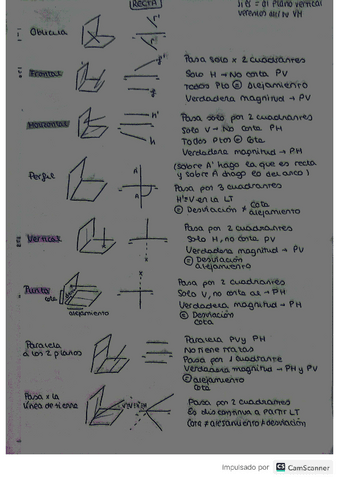 RECTA
al plano vertical
Oblicua
Frontal
Pasa solo x 2 cuadrantes
Solo H → No corta PV
Todos Pto = alejamiento
Verdadera magnitud → PV
Horizontal
Pasa solo por 2 cuadrantes
Solo V → No corta PH
Todos Ptos = cota
Verdadera magnitud → PH
Perfil
(sobre A' hago la que es recta
y sobre A hago el del arco)
Pasa por 3 cuadrantes
H=V en la LT
= Desviación ≠ cota
alejamiento
Vertical
Pasa por 2 cuadrantes
Solo H, no corta PV
Verdadera magnitud → PV
= Desviación
alejamiento
Punta
cota
alejamiento
Pasa por 2 cuadrantes
Solo V, no corta al → PH
Verdadera magnitud → PH
= Desviación
cota
Paralela
a los 2 planos
Paralela PV y PH
No tiene trazas
Pasa por 1 cuadrante
Verdadera magnitud → PH y PV
= alejamiento
cota
Pasa x la
línea de tierra
Pasa por 2 cuadrantes
Es discontinua a partir LT
Cota ≠ alejamiento ≠ desviación
Impulsado por CamScanner